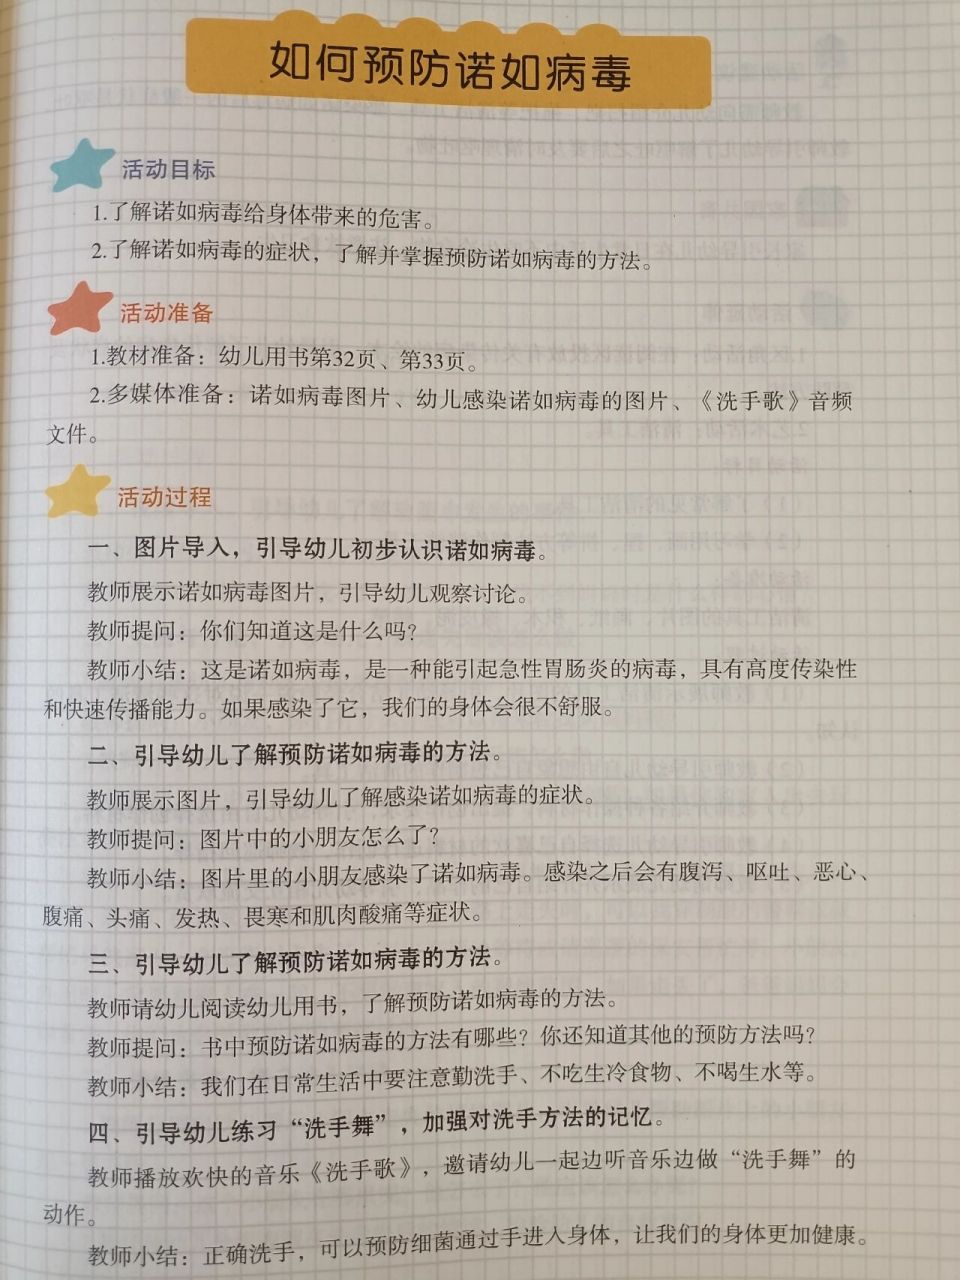 如何预防诺如病毒
活动目标
1.了解诺如病毒给身体带来的危害。
2.了解诺如病毒的症状，了解并掌握预防诺如病毒的方法。
活动准备
1.教材准备：幼儿用书第32页、第33页。
2.多媒体准备：诺如病毒图片、幼儿感染诺如病毒的图片、《洗手歌》音频
文件。
活动过程
一、图片导入，引导幼儿初步认识诺如病毒。
教师展示诺如病毒图片，引导幼儿观察讨论。
教师提问：你们知道这是什么吗？
教师小结：这是诺如病毒，是一种能引起急性胃肠炎的病毒，具有高度传染性
和快速传播能力。如果感染了它，我们的身体会很不舒服。
二、引导幼儿了解预防诺如病毒的方法。
教师展示图片，引导幼儿了解感染诺如病毒的症状。
教师提问：图片中的小朋友怎么了？
教师小结：图片里的小朋友感染了诺如病毒。感染之后会有腹泻、呕吐、恶心、
腹痛、头痛、发热、畏寒和肌肉酸痛等症状。
三、引导幼儿了解预防诺如病毒的方法。
教师请幼儿阅读幼儿用书，了解预防诺如病毒的方法。
教师提问：书中预防诺如病毒的方法有哪些？你还知道其他的预防方法吗？
教师小结：我们在日常生活中要注意勤洗手、不吃生冷食物、不喝生水等。
四、引导幼儿练习“洗手舞”，加强对洗手方法的记忆。
教师播放欢快的音乐《洗手歌》，邀请幼儿一起边听音乐边做“洗手舞”的
动作。
教师小结：正确洗手，可以预防细菌通过手进入身体，让我们的身体更加健康。